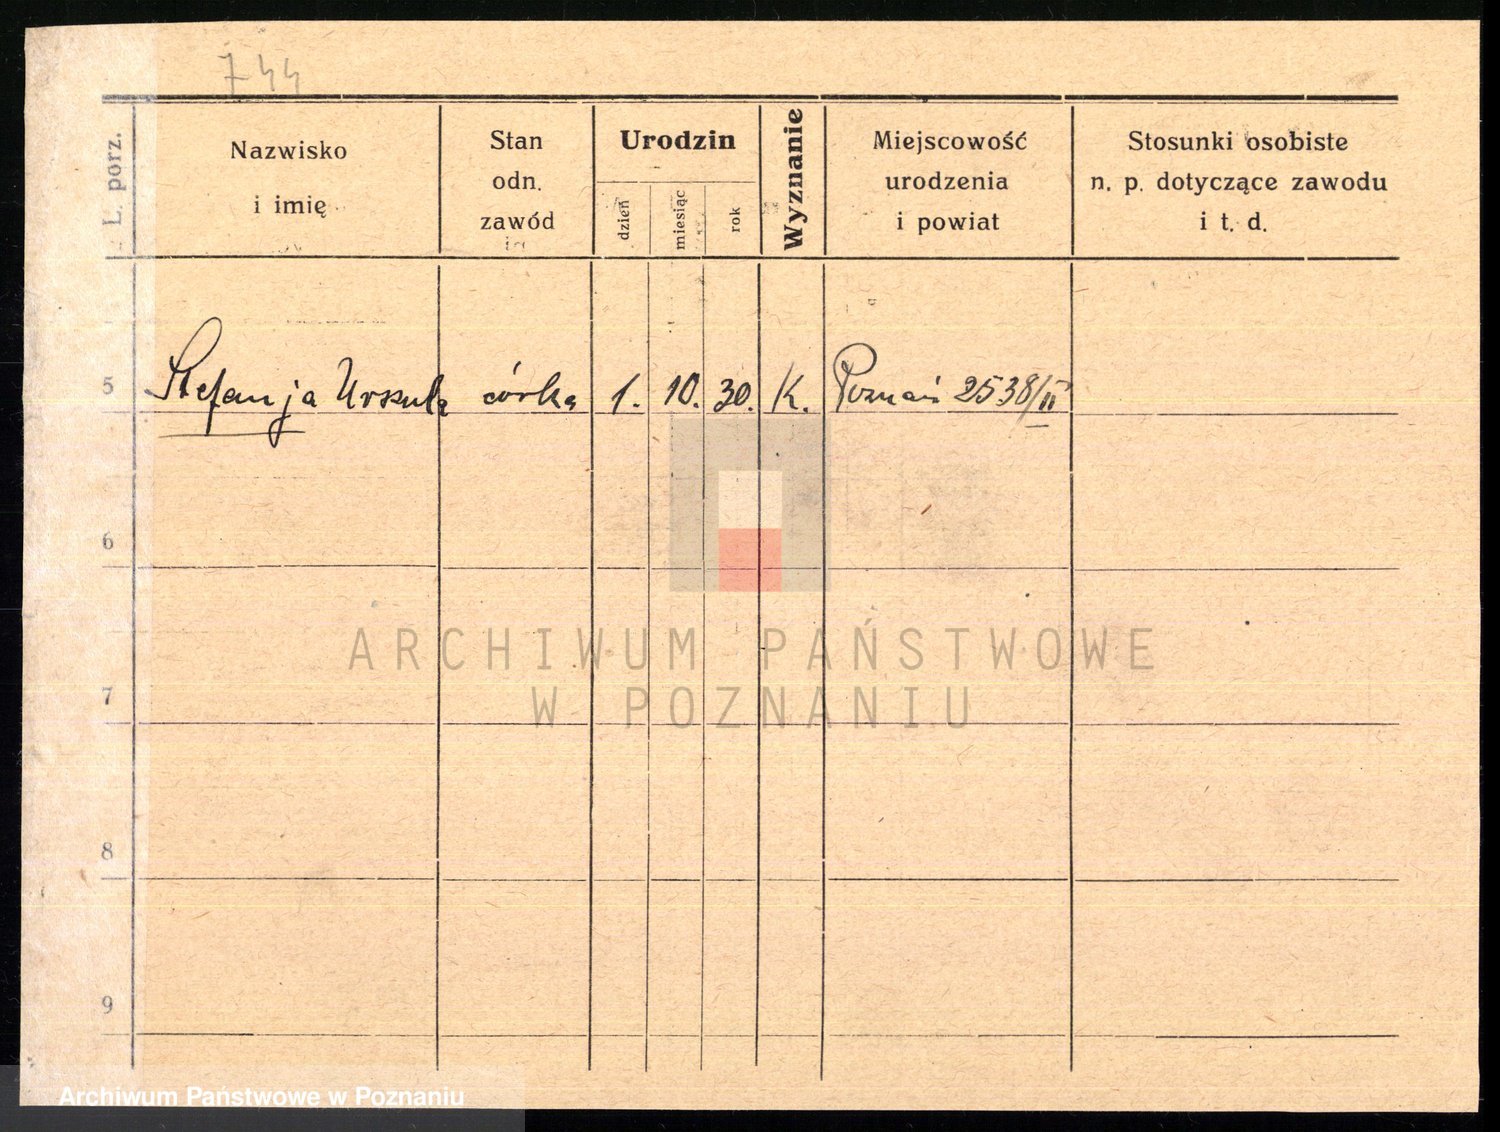 744
L. porz.
Nazwisko
i imię
Stan
odn.
zawód
Urodzin
dzień
miesiąc
rok
Wyznanie
Miejscowość
urodzenia
i powiat
Stosunki osobiste
n. p. dotyczące zawodu
i t. d.
5 Stefanja Urszula córka 1. 10. 30. K. Poznań 2538/II
6
7
8
9
ARCHIWUM PAŃSTWOWE
W POZNANIU
Archiwum Państwowe w Poznaniu